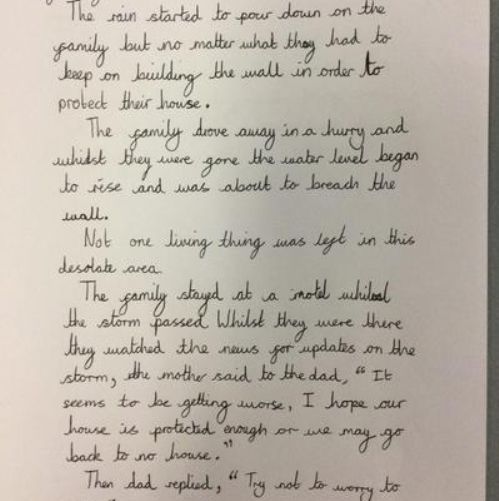 The rain started to pour down on the
family but no matter what they had to
keep on building the wall in order to
protect their house.
The family drove away in a hurry and
whilst they were gone the water level began
to rise and was about to breach the
wall.
Not one living thing was left in this
desolate area.
The family stayed at a motel whilest
the storm passed Whilst they were there
they watched the news for updates on the
storm, the mother said to the dad, “It
seems to be getting worse, I hope our
house is protected enough or we may go
back to no house.”
Then dad replied, “Try not to worry to